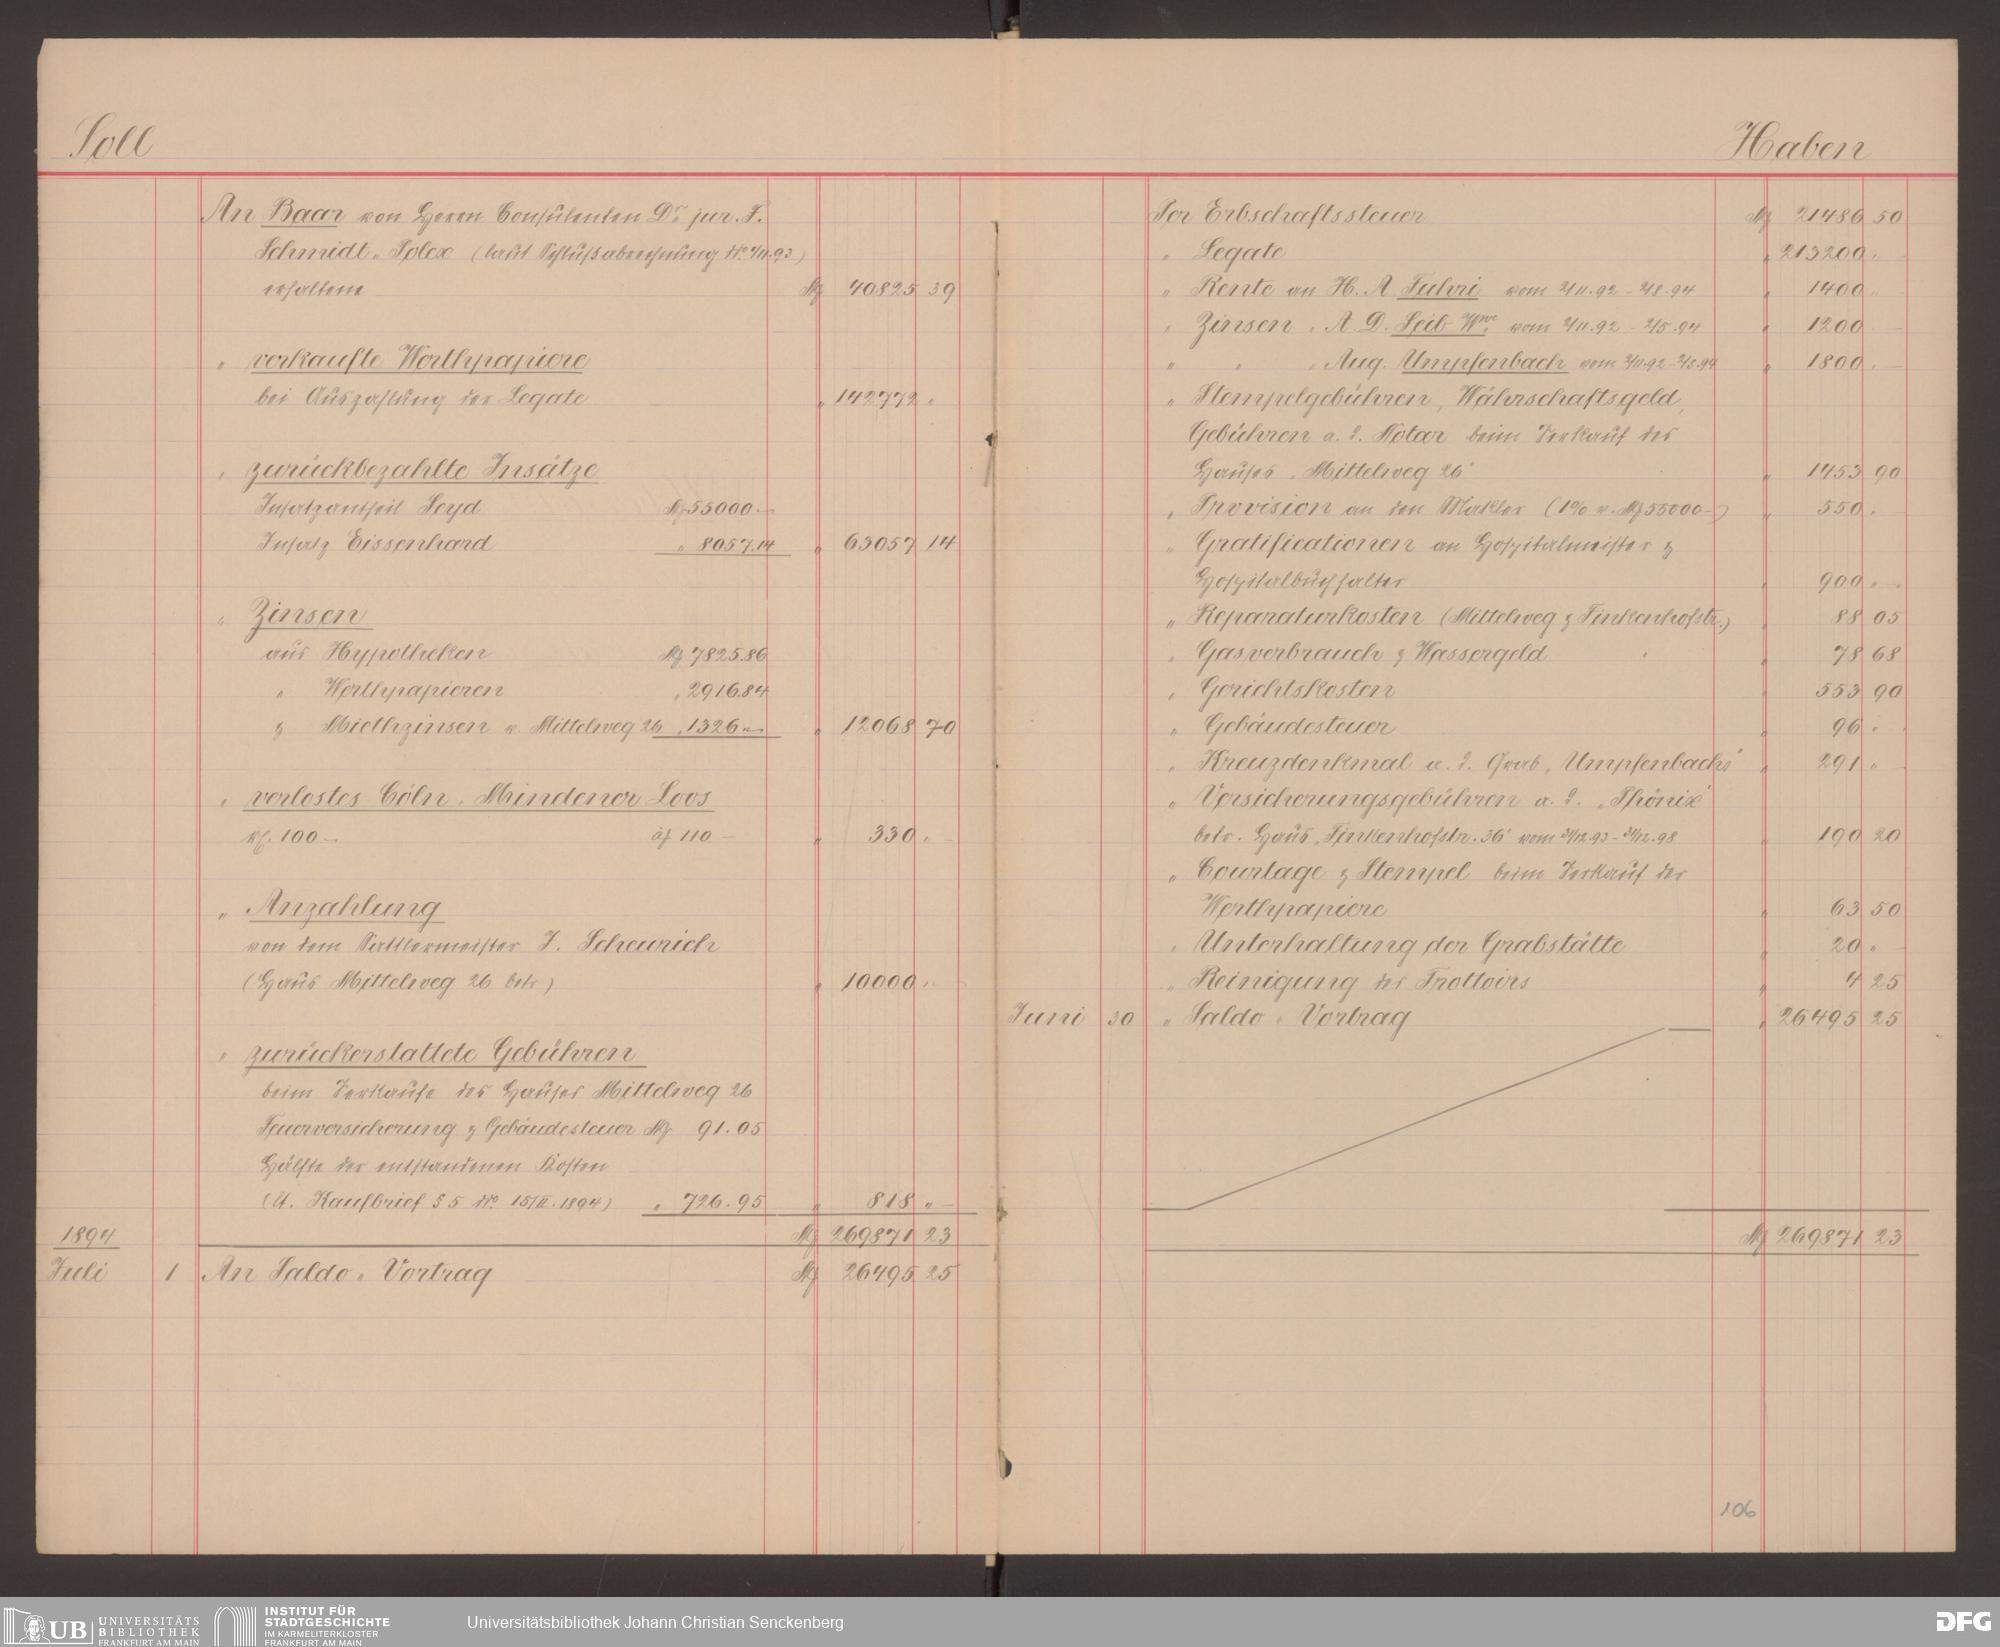 Soll
An Baar von Herrn Consulenten Dr jur. F.
Schmidt-Polex (laut Schlußabrechnung do. 4/11.93)
erhaltene M 40825 39
" verkaufte Werthpapiere
bei Auszahlung der Legate " 142772 "
" zurückbezahlte Insätze
Insatzantheil Seyd M 55000 —
Insatz Eissenhard " 8057.14 " 63057 14
" Zinsen
aus Hypotheken M 7825.86
" Werthpapieren " 2916.84
& Miethzinsen v. Mittelweg 26 " 1326 " — " 12068 70
" verlostes Cöln-Mindener Loos
100 — à 110 — " 330 " —
" Anzahlung
von dem Sattlermeister J. Scheurich
(Haus Mittelweg 26 betr) " 10000 " —
" zurückerstattete Gebühren
beim Verkaufe des Hauses Mittelweg 26
Feuerversicherung & Gebäudesteuer M 91.05
Hälfte der entstandenen Kosten
(lt. Kaufbrief § 5 do. 15/II. 1894) " 726.95 " 818 " —
1894 M 269871 23
Juli 1 An Saldo-Vortrag M 26495 25
Haben
Per Erbschaftssteuer M 21486 50
" Legate " 213200 " —
" Rente an H. A. Fuhri vom 2/11.92 – 2/8.94 " 1400 " —
" Zinsen " A. D. Leib Wwe. vom 2/11.92 – 2/5.94 " 1200 —
" " " Aug. Umpfenbach vom 2/11.92 – 2/5.94 " 1800 " —
" Stempelgebühren, Währschaftsgeld,
Gebühren a. d. Notar beim Verkauf des
Hauses "Mittelweg 26" " 1453 90
" Provision an den Makler (1% v. M 55000 —) " 550 " —
" Gratificationen an Hospitalmeister &
Hospitalbuchhalter " 900 " —
" Reparaturkosten (Mittelweg & Finkenhofstr.) " 88 05
" Gasverbrauch & Wassergeld " 78 68
" Gerichtskosten " 553 90
" Gebäudesteuer " 96 " —
" Kreuzdenkmal a. d. Grab "Umpfenbachs" " 291 " —
" Versicherungsgebühren a. d. "Phönix"
betr. Haus "Finkenhofstr. 36" vom 31/12.93 – 31/12.98 " 190 20
" Courtage & Stempel beim Verkauf der
Werthpapiere " 63 50
" Unterhaltung der Grabstätte " 20 " —
" Reinigung des Trottoirs " 4 25
Juni 30 " Saldo-Vortrag " 26495 25
M 269871 23
106
UB UNIVERSITÄTS
BIBLIOTHEK
FRANKFURT AM MAIN
INSTITUT FÜR
STADTGESCHICHTE
IM KARMELITERKLOSTER
FRANKFURT AM MAIN
Universitätsbibliothek Johann Christian Senckenberg
DFG